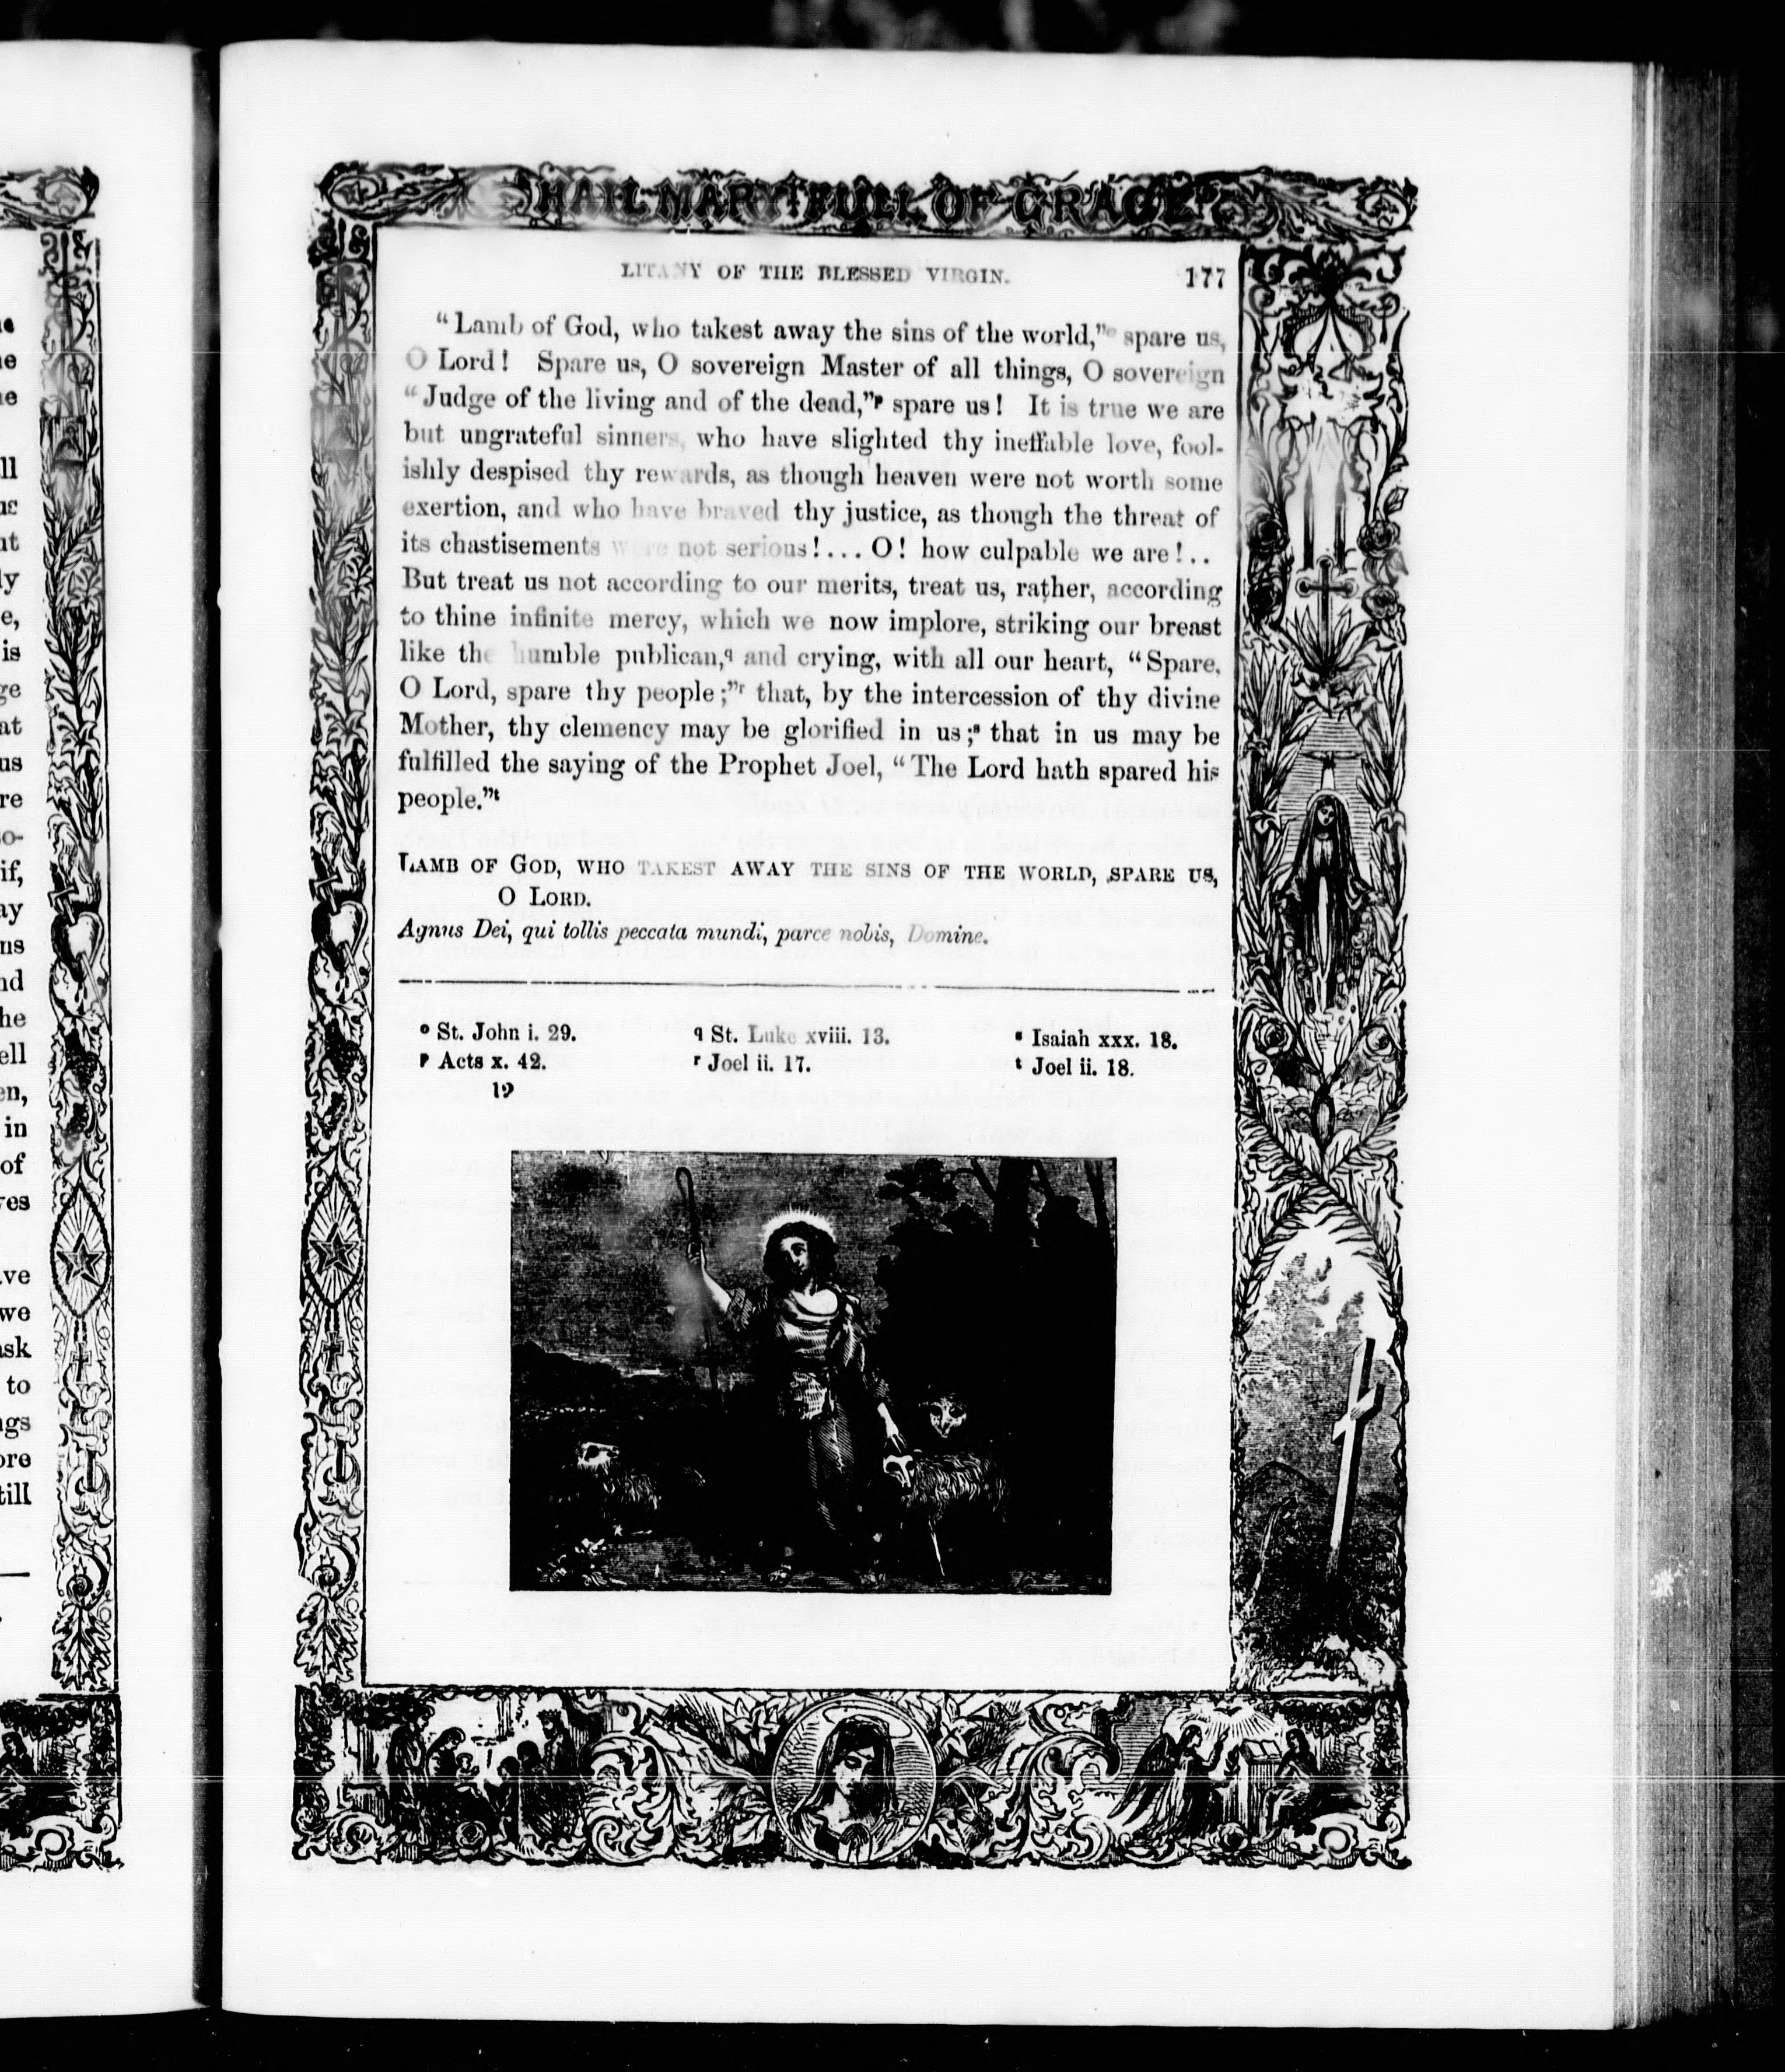 HAIL MARY! FULL OF GRACE
LITANY OF THE BLESSED VIRGIN. 177
“Lamb of God, who takest away the sins of the world,”ᵒ spare us,
O Lord! Spare us, O sovereign Master of all things, O sovereign
“Judge of the living and of the dead,”ᵖ spare us! It is true we are
but ungrateful sinners, who have slighted thy ineffable love, fool-
ishly despised thy rewards, as though heaven were not worth some
exertion, and who have braved thy justice, as though the threat of
its chastisements were not serious!... O! how culpable we are!..
But treat us not according to our merits, treat us, rather, according
to thine infinite mercy, which we now implore, striking our breast
like the humble publican,q and crying, with all our heart, “Spare,
O Lord, spare thy people;”ʳ that, by the intercession of thy divine
Mother, thy clemency may be glorified in us;ˢ that in us may be
fulfilled the saying of the Prophet Joel, “The Lord hath spared his
people.”ᵗ
LAMB OF GOD, WHO TAKEST AWAY THE SINS OF THE WORLD, SPARE US,
O LORD.
Agnus Dei, qui tollis peccata mundi, parce nobis, Domine.
ᵒ St. John i. 29. q St. Luke xviii. 13. ˢ Isaiah xxx. 18.
ᵖ Acts x. 42. ʳ Joel ii. 17. ᵗ Joel ii. 18.
12